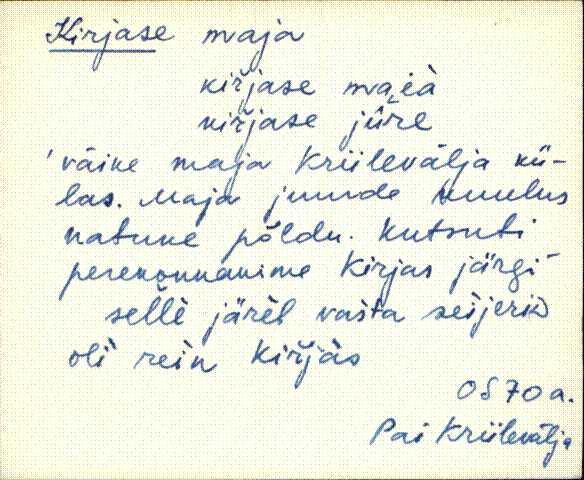 Kirjase maja
kiŕjase maia
kiŕjase jüŕe
väike maja Kriilevälja kü-
las. Maja juurde kuulus
natuke põldu. Kutsuti
perekonnanime Kirjas järgi
selle järel vasta
oli rein Kiŕjas
OS 70 a.
Pai Kriilevälja